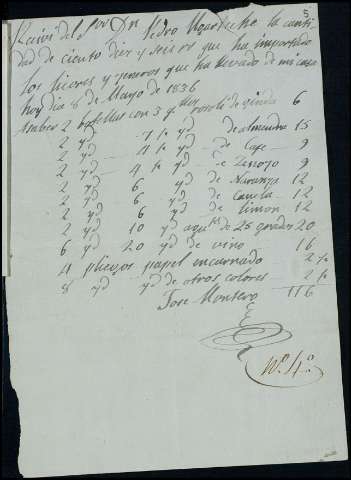 5
Recivi del Sor Dn Pedro Ugarteche la canti
dad de ciento diez y seis rs que ha importado
los licores y generos que ha llevado de mi casa
hoy dia 8 de Mayo de 1836
Asaber 2 botellas con 3 qllos rosoli de guinda 6
2 yd 7 ½ yd de almendra 15
2 yd 4 ½ yd de Cafe 9
2 yd 4 ½ yd de Hinojo 9
2 yd 6 yd de Naranja 12
2 yd 6 yd de Canela 12
2 yd 6 de limon 12
2 yd 10 yd aqte de 25 grados 20
6 yd 20 yd de vino 16
4 pliegos papel encarnado 2 ½
8 yd yd de otros colores 2 ½
Jose Montero 116
No. 4o